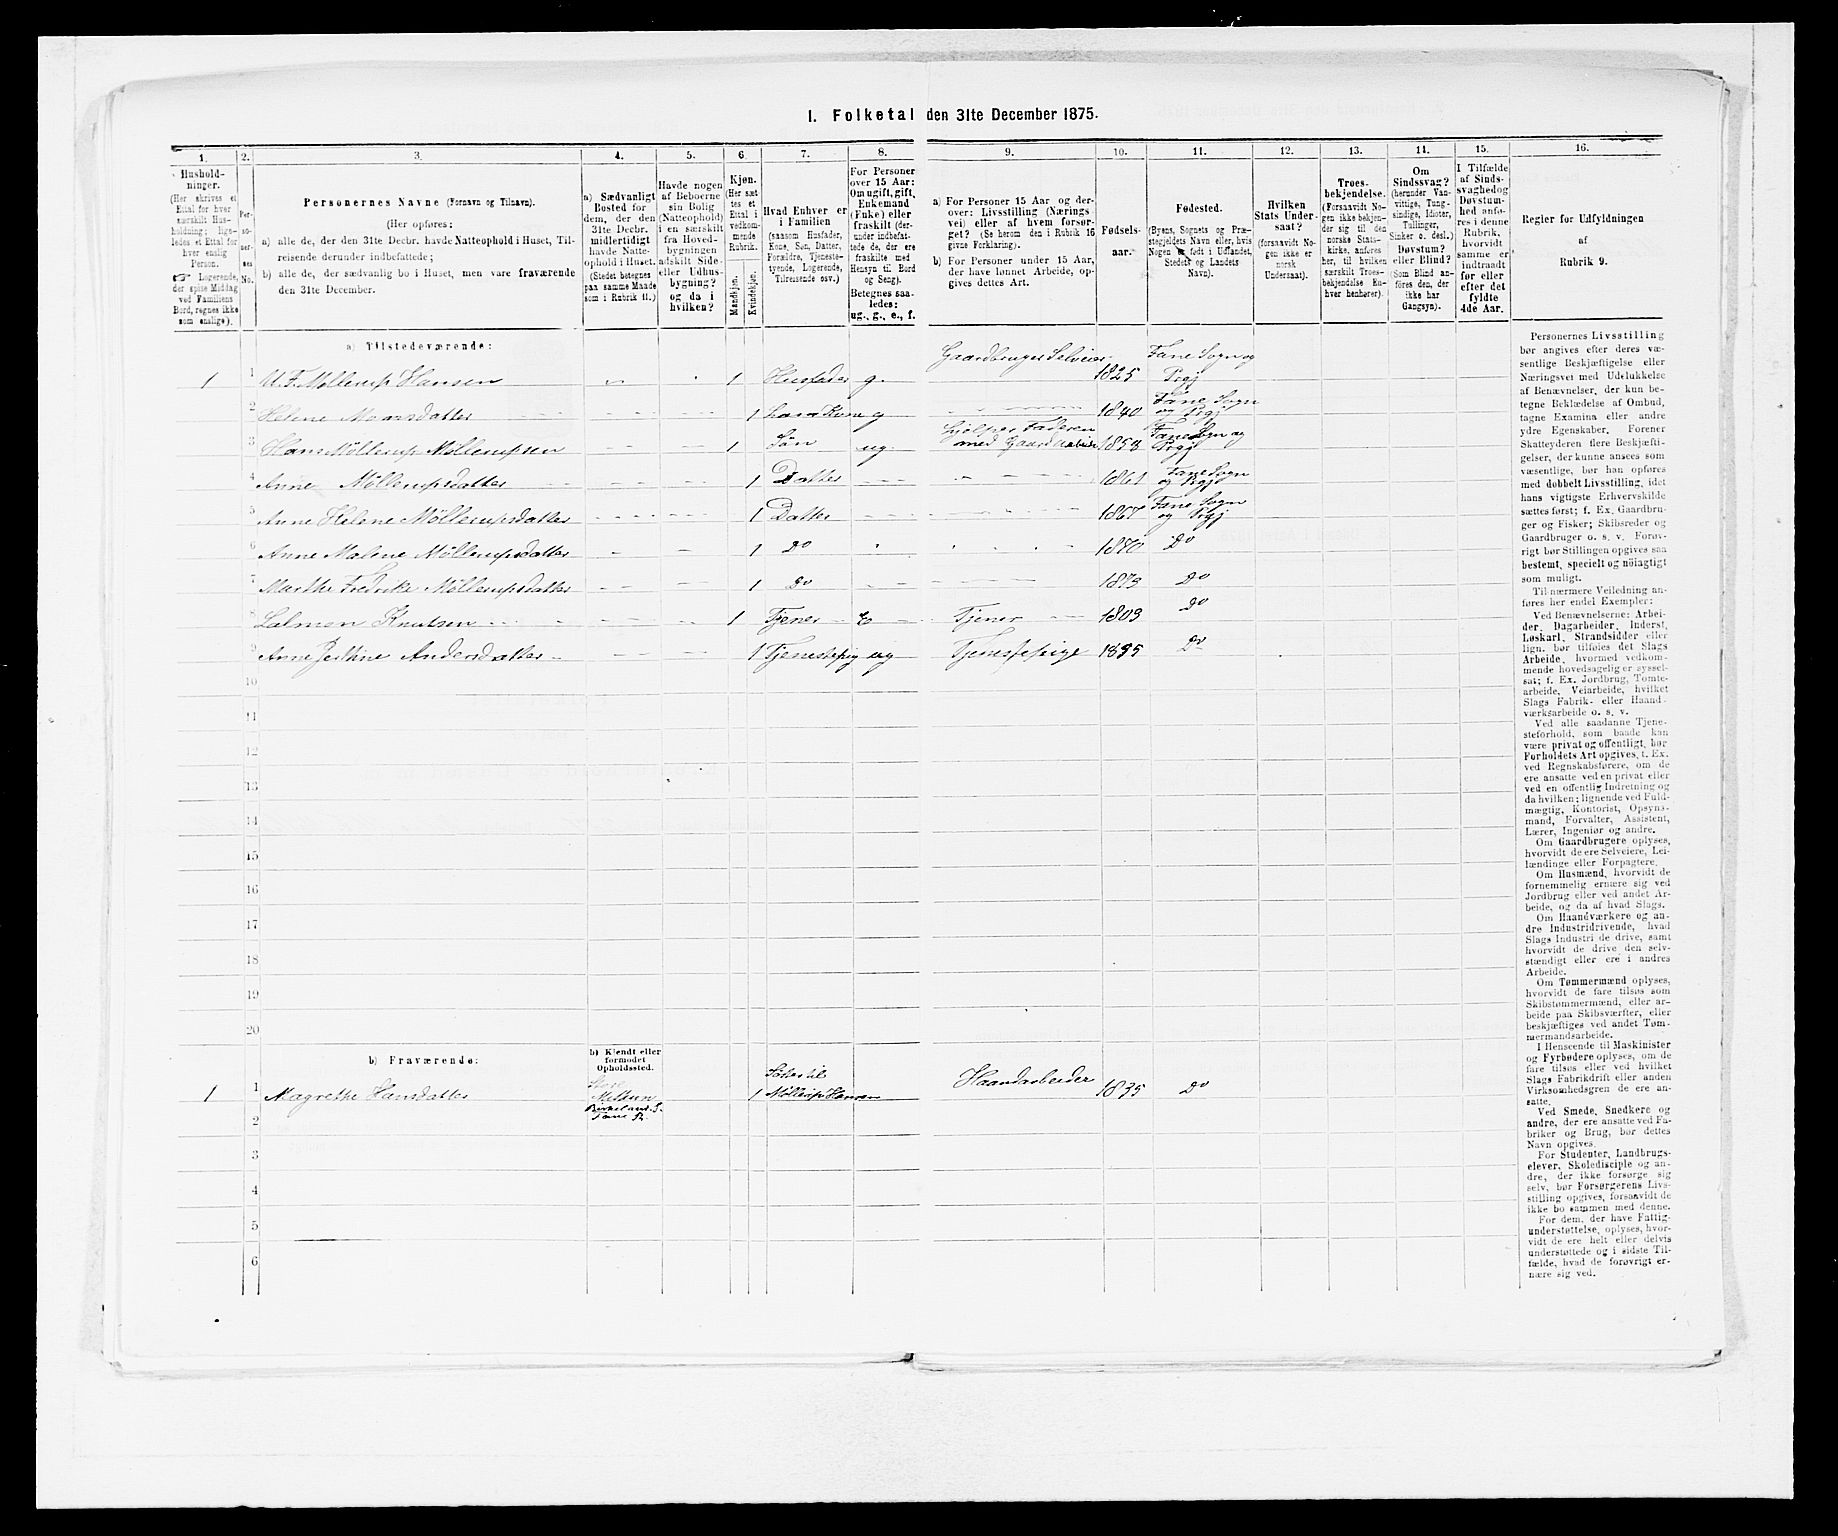 I. Folketal den 31te December 1875.
1. 2. 3. 4. 5. 6. 7. 8. 9. 10. 11. 12. 13. 14. 15. 16.
Hushold-
ninger.
(Her skrives et
Ettal for hver
særskilt Hus-
holdning; lige-
ledes et Ettal for
hver enslig
Person.
☞ Logerende,
der spise Middag
ved Familiens
Bord, regnes ikke
som enslige).
Per-
soner-
nes
No.
Personernes Navne (Fornavn og Tilnavn).
(Her opføres:
a) alle de, der den 31te Decbr. havde Natteophold i Huset, Til-
reisende derunder indbefattede;
b) alle de, der sædvanlig bo i Huset, men vare fraværende
den 31te December.
a) Sædvanligt
Bosted for
dem, der den
31te Decbr.
midlertidigt
havde Natte-
ophold i Huset.
(Stedet betegnes
paa samme Maade
som i Rubrik 11.)
Havde nogen
af Beboerne
sin Bolig
(Natteophold)
i en særskilt
fra Hoved-
bygningen
adskilt Side-
eller Udhus-
bygning?
og da i
hvilken?
Kjøn.
(Her sæt-
tes et
Ettal i
vedkom-
mende
Rubrik.
Mandkjøn.
Kvindekjøn.
Hvad Enhver er
i Familien
(saasom Husfader,
Kone, Søn, Datter,
Forældre, Tjeneste-
tyende, Logerende,
Tilreisende osv.)
For Personer
over 15 Aar:
Om ugift, gift,
Enkemand
(Enke) eller
fraskilt (der-
under indbefat-
tede de, der ere
fraskilte med
Hensyn til Bord
og Seng).
Betegnes saa-
ledes:
ug., g., e., f.
a) For Personer 15 Aar og der-
over: Livsstilling (Nærings
vei) eller af hvem forsør-
get? (Se herom den i Rubrik 16
givne Forklaring).
b) For Personer under 15 Aar,
der have lønnet Arbeide, op-
gives dettes Art.
Fødsels-
aar.
Fødested.
(Byens, Sognets og Præ-
stegjeldets Navn eller, hvis
Nogen er født i Udlandet,
Stedets og Landets
Navn).
Hvilken
Stats Under-
saat?
(forsaavidt No-
gen ikke er
norsk
Undersaat).
Troes-
bekjendelse.
(Forsaavidt No-
gen ikke bekjen-
der sig til den
norske Stats-
kirke, anføres
her, til hvilken
særskilt Troes-
bekjendelse En-
hver henhører).
Om
Sindssvag?
(herunder Van-
vittige, Tung-
sindige, Idioter,
Tullinger,
Sinker o. desl.)
Døvstum?
eller Blind?
(Som Blind an-
føres den, der
ikke har
Gangsyn).
I Tilfælde
af Sinds-
svaghed og
Døvstum-
hed anfø-
res i denne
Rubrik,
hvorvidt
samme er
indtraadt
før eller
efter det
fyldte
4de Aar.
Regler for Udfyldningen
af
Rubrik 9.
a) Tilstedeværende:
1 1 U. F. Møllerup Hansen 1 Husfader g. Gaardbruger Selveier 1825 Fane Sogn og Prgj
2 Helene Monsdatter 1 hans Kone g 1840 Fane Sogn og Prgj
3 Hans Møllerup Møllerupsen 1 Søn ug Hjelper Faderen med Gaardsarbeide 1858 Fane Sogn og Prgj
4 Anne Møllerupsdatter 1 Datter 1861 Fane Sogn og Prgj
5 Anne Helene Møllerupsdatter 1 Datter 1867 Fane Sogn og Prgj
6 Anne Malene Møllerupsdatter 1 Do 1870 Do
7 Marthe Fredrike Møllerupsdatter 1 Do 1873 Do
8 Salmon Knutsen 1 Tjener E Tjener 1803 Do
9 Anne Andersdatter 1 Tjenestepig ug Tjenestepige 1835 Do
10
11
12
13
14
15
16
17
18
19
20
b) Fraværende:
b) Kjendt eller
formodet
Opholdssted.
1 1 Magrethe Hansdatter Birkeland S. Fane P. 1 Søster til Møllerup Hansen Haandarbeider 1835 Do
2
3
4
5
6
Personernes Livsstilling
bør angives efter deres væ-
sentlige Beskjæftigelse eller
Næringsvei med Udelukkelse
af Benævnelser, der kun be-
tegne Beklædelse af Ombud,
tagne Examina eller andre
ydre Egenskaber. Forener
Skatteyderen flere Beskjæfti-
gelser, der kunne ansees som
væsentlige, bør han opføres
med dobbelt Livsstilling, idet
hans vigtigste Erhvervskilde
sættes først; f. Ex. Gaardbru-
ger og Fisker; Skibsreder og
Gaardbruger o. s. v. Forøv-
rigt bør Stillingen opgives saa
bestemt, specielt og nöiagtigt
som muligt.
Til nærmere Veiledning an-
føres her endel Exempler:
Ved Benævnelserne: Arbei-
der, Dagarbeider, Inderst,
Løskarl, Strandsidder eller
lign. bør tilføies det Slags
Arbeide, hvormed vedkom-
mende hovedsagelig er syssel-
sat; f. Ex. Jordbrug, Tomte-
arbeide, Veiarbeide, hvilket
Slags Fabrik- eller Haand-
værksarbeide o. s. v.
Ved alle saadanne Tjene-
steforhold, som baade kan
være privat og offentligt, bør
Forholdets Art opgives, t. Ex.
ved Regnskabsførere, om de
ere ansatte ved en privat eller
ved en offentlig Indretning og
da hvilken; lignende ved Fuld-
mægtig, Kontorist, Opsyns-
mand, Forvalter, Assistent,
Lærer, Ingeniør og andre.
Om Gaardbrugere oplyses,
hvorvidt de ere Selveiere, Lei-
lændinge eller Forpagtere.
Om Husmænd, hvorvidt de
fornemmelig ernære sig ved
Jordbrug eller ved andet Ar-
beide, og da af hvad Slags.
Om Haandværkere og an-
dre Industridrivende, hvad
Slags Industri de drive, samt
hvorvidt de drive den selv-
stændigt eller ere i andres
Arbeide.
Om Tømmermænd oplyses,
hvorvidt de fare tilsøs som
Skibstømmermænd, eller ar-
beide paa Skibsværfter, eller
beskjæftiges ved andet Tøm-
mermandsarbeide.
I Henseende til Maskinister
og Fyrbødere oplyses, om de
fare tilsøs eller ved hvilket
Slags Fabrikdrift eller anden
Virksomhedsgren de ere an-
satte.
Ved Smede, Snedkere og
andre, der ere ansatte ved Fa-
briker og Brug, bør dettes
Navn opgives.
For Studenter, Landbrugs-
elever, Skoledisciple og an-
dre, der ikke forsørge sig
selv, bør Forsørgerens Livs-
stilling opgives, forsaavidt de
ikke bo sammen med denne.
For dem, der have Fattig-
understøttelse, oplyses, hvor-
vidt de ere helt eller delvis
understøttede og i sidste Til-
fælde, hvad de forøvrigt er-
nære sig ved.